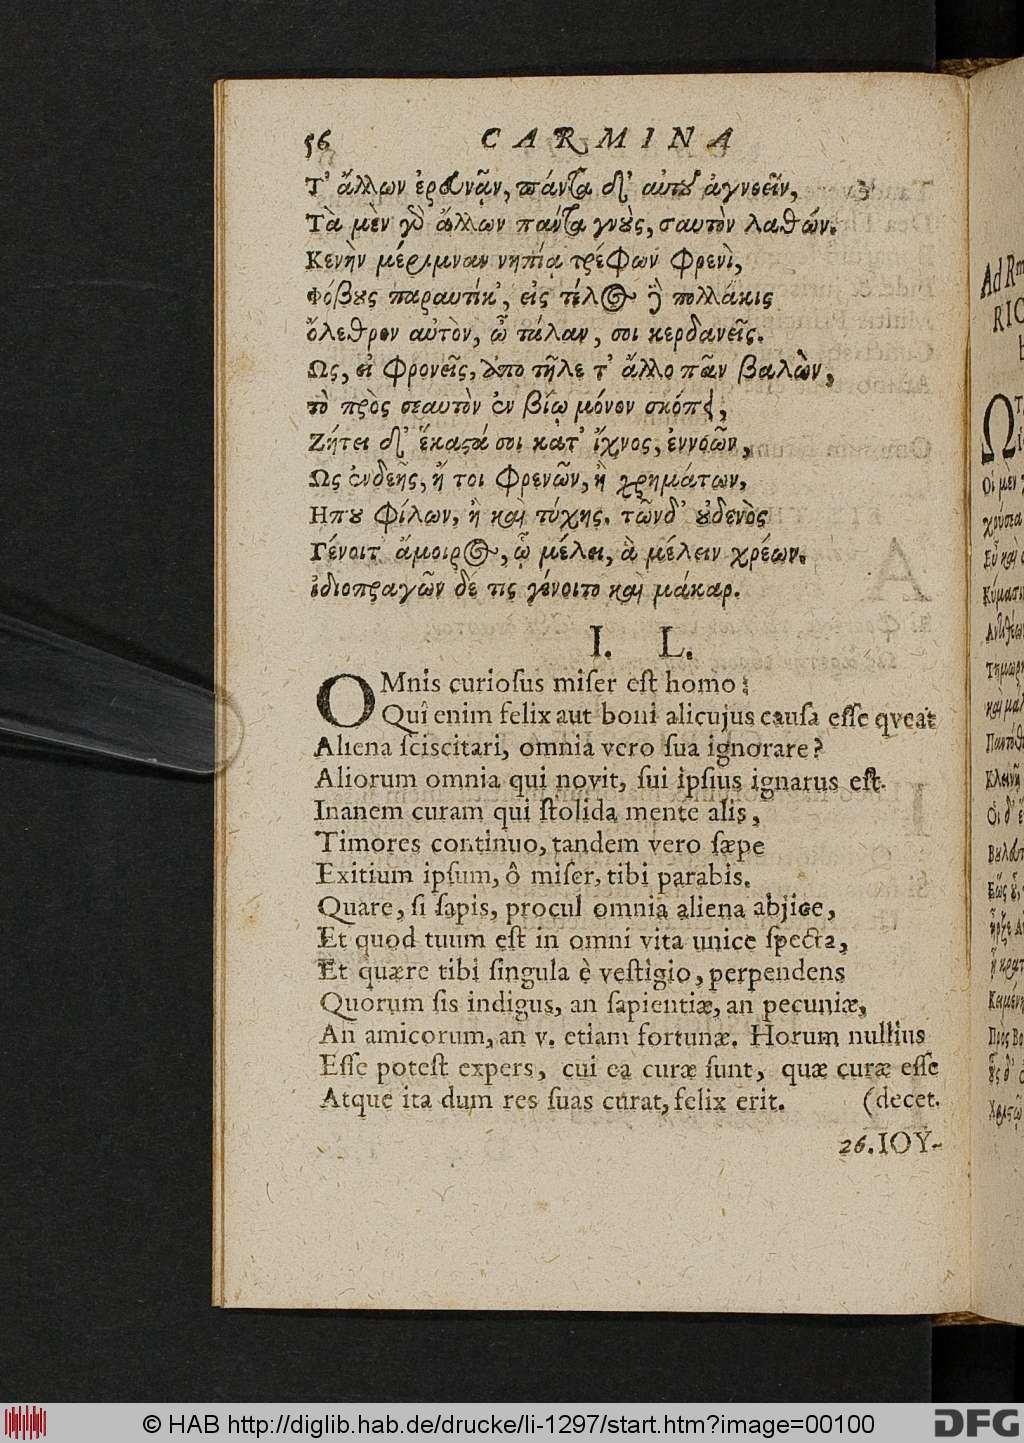 56 CARMINA
Τ' ἄλλων ἐρευνᾷν, πάντα δ' αὑτοῦ ἀγνοεῖν,
Τὰ μὲν γὸ ἄλλων πάντα γνοὺς, σαυτὸν λαθών.
Κενὴν μέριμναν νηπίᾳ τρέφων φρενὶ,
Φόβους παραυτίκ', εἰς τέλος ἢ πολλάκις
ὄλεθρον αὐτὸν, ὦ τάλαν, σοι κερδανεῖς.
Ως, εἰ φρονεῖς, ἀπο τῆλε τ' ἄλλο πᾶν βαλὼν,
τὸ πρὸς σεαυτὸν ἐν βίῳ μόνον σκόπει,
Ζήτει δ' ἕκαστά σοι κατ' ἴχνος, ἐννοῶν,
Ως ἐνδεὴς, ἤ τοι φρενῶν, ἢ χρημάτων,
Ηπου φίλων, ἢ καὶ τύχης. τῶνδ' οὐδενὸς
Γένοιτ' ἄμοιρος, ᾧ μέλει, ἃ μέλειν χρέων.
ἰδιοπραγῶν δέ τις γένοιτο καὶ μάκαρ.
I. L.
OMnis curioſus miſer eſt homo:
Quî enim felix aut boni alicujus cauſa eſſe qveat
Aliena ſciscitari, omnia vero ſua ignorare?
Aliorum omnia qui novit, ſui ipſius ignarus eſt.
Inanem curam qui ſtolida mente alis,
Timores continuo, tandem vero ſæpe
Exitium ipſum, ô miſer, tibi parabis.
Quare, ſi ſapis, procul omnia aliena abjice,
Et quod tuum eſt in omni vita unice ſpecta,
Et quære tibi ſingula è veſtigio, perpendens
Quorum ſis indigus, an ſapientiæ, an pecuniæ,
An amicorum, an v. etiam fortunæ. Horum nullius
Eſſe poteſt expers, cui ea curæ ſunt, quæ curæ eſſe
Atque ita dum res ſuas curat, felix erit. (decet.
26. IOY-
Ad Rm
RIC
ΩΤ
Οἱ μὲν
χρύσεα
Εὖ καὶ
Κύμασι
Ἀντιθέων
Τημωρ
καὶ μάλ
Παντόθ
Κλεινῆ
Οἱ δ'
Βουλὰς
Κειμένη
Πρὸς Βο
© HAB http://diglib.hab.de/drucke/li-1297/start.htm?image=00100
DFG